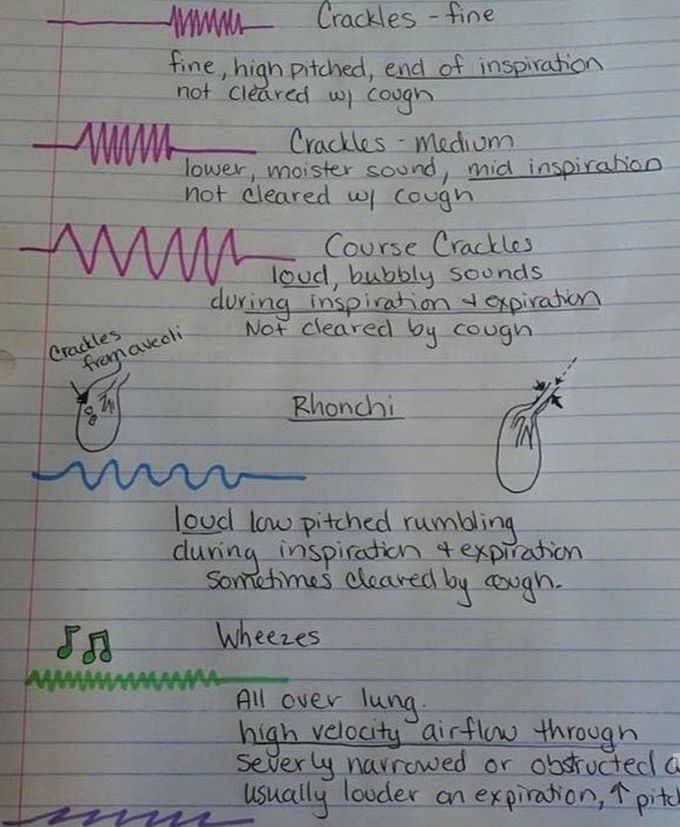 Crackles - fine
fine, high pitched, end of inspiration
not cleared w/ cough
Crackles - Medium
lower, moister sound, mid inspiration
not cleared w/ cough
Course Crackles
loud, bubbly sounds
during inspiration & expiration
Not cleared by cough
Crackles
from aveoli
Rhonchi
loud low pitched rumbling
during inspiration & expiration
Sometimes cleared by cough.
Wheezes
All over lung.
high velocity airflow through
severly narrowed or obstructed a
usually louder on expiration, ↑ pitc